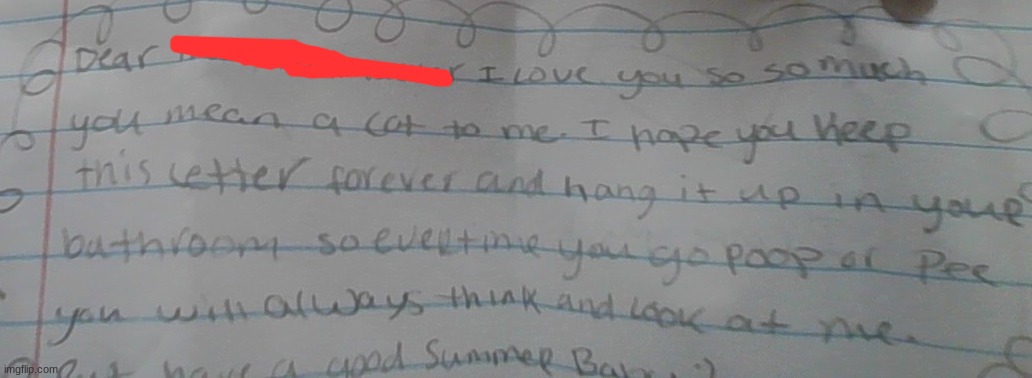 Dear I Love you so so much
you mean a cat to me. I hope you Keep
this letter forever and hang it up in your
bathroom so evertime you go poop or pee
you will always think and look at me.
But have a good Summer Baby :)
imgflip.com